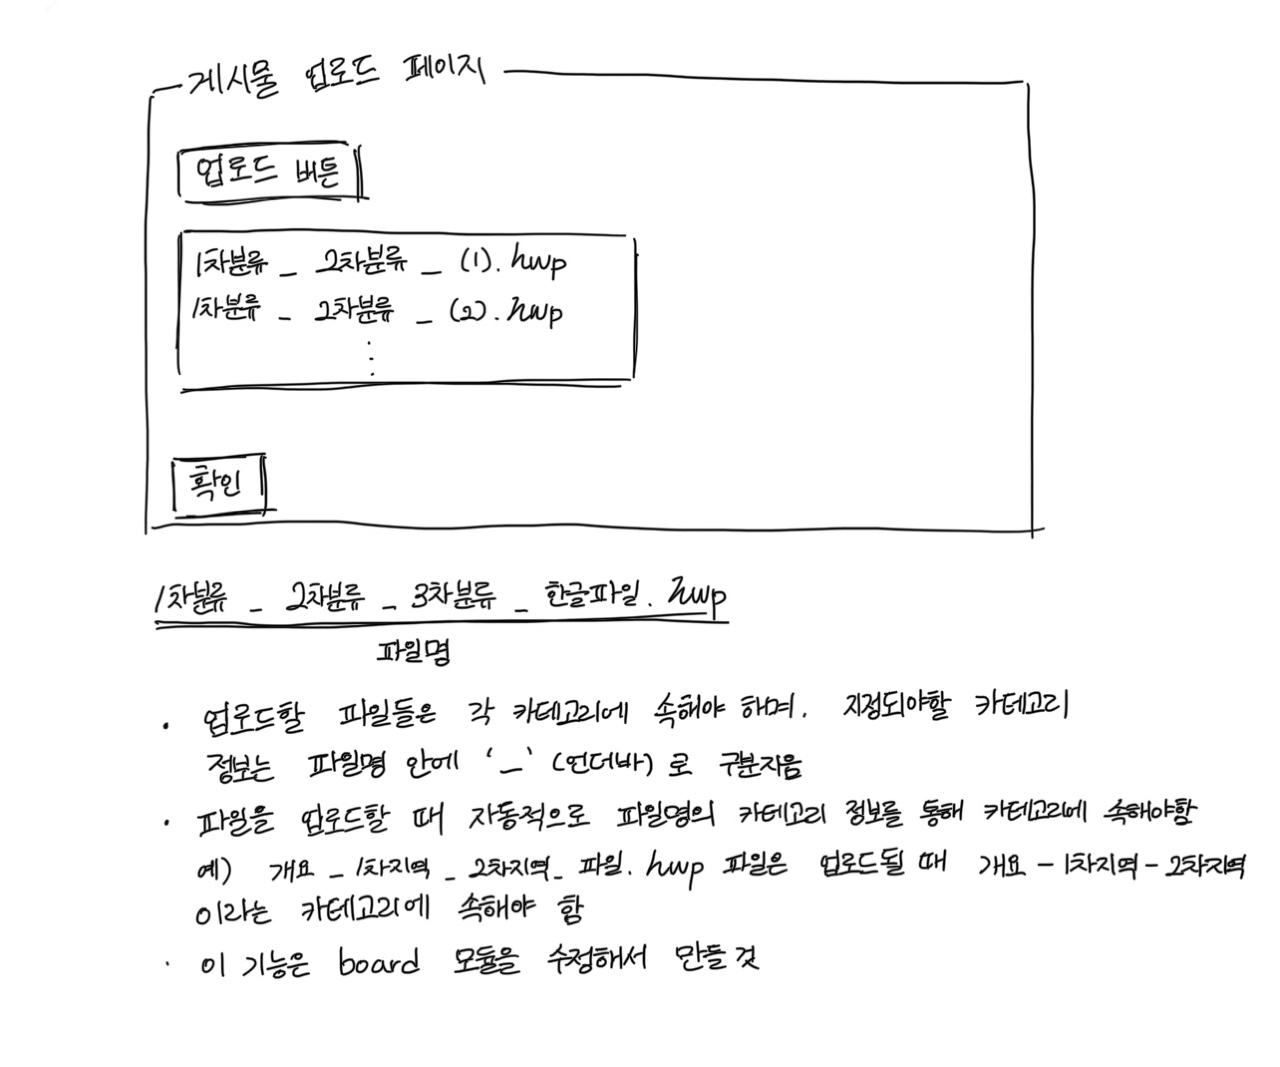 게시물 업로드 페이지
업로드 버튼
1차분류 _ 2차분류 _ (1). hwp
1차분류 _ 2차분류 _ (2). hwp
⋮
확인
1차분류 _ 2차분류 _ 3차분류 _ 한글파일. hwp
파일명
· 업로드할 파일들은 각 카테고리에 속해야 하며. 지정되야할 카테고리
정보는 파일명 안에 '_' (언더바) 로 구분지음
· 파일을 업로드할 때 자동적으로 파일명의 카테고리 정보를 통해 카테고리에 속해야함
예) 개요 _ 1차지역 _ 2차지역_ 파일. hwp 파일은 업로드될 때 개요 - 1차지역 - 2차지역
이라는 카테고리에 속해야 함
· 이 기능은 board 모듈을 수정해서 만들 것